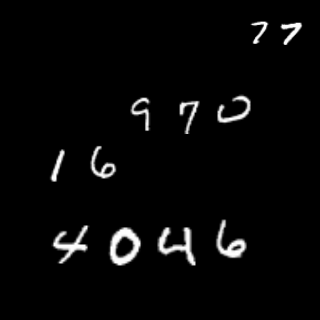 77
970
16
4046